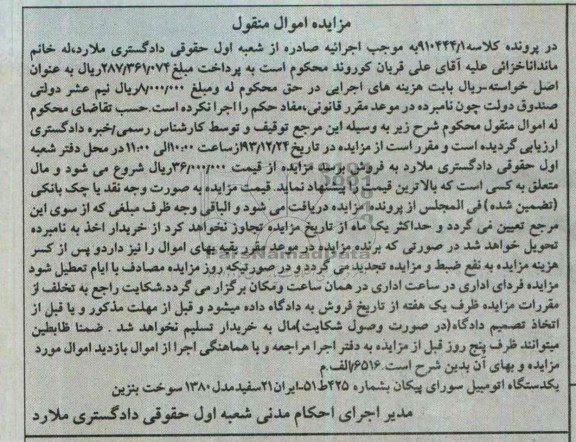 مزایده اموال منقول
در پرونده کلاسه ۹۱۰۴۴۴/۱به موجب اجرائیه صادره از شعبه اول حقوقی دادگستری ملارد،له خانم
ماندانا خزائی علیه آقای علی قربان کوروند محکوم است به پرداخت مبلغ ۲۸۷/۳۶۱/۰۷۴ریال به عنوان
اصل خواسته-ریال بابت هزینه های اجرایی در حق محکوم له ومبلغ ۸/۰۰۰/۰۰۰ریال نیم عشر دولتی
صندوق دولت چون نامبرده در موعد مقرر قانونی،مفاد حکم را اجرا نکرده است.حسب تقاضای محکوم
له اموال منقول محکوم شرح زیر به وسیله این مرجع توقیف و توسط کارشناس رسمی/خبره دادگستری
ارزیابی گردیده است و مقرر است از مزایده در تاریخ ۹۳/۱۲/۲۴ازساعت ۱۰:۰۰الی ۱۱:۰۰ در محل دفتر شعبه
اول حقوقی دادگستری ملارد به فروش برسد مزایده از قیمت ۳۶/۰۰۰/۰۰۰ریال شروع می شود و مال
متعلق به کسی است که بالاترین قیمت را پیشنهاد نماید. قیمت مزایده به صورت وجه نقد یا چک بانکی
(تضمین شده) فی المجلس از پرونده مزایده دریافت می شود و الباقی وجه ظرف مبلغی که از سوی این
مرجع تعیین می گردد و حداکثر یک ماه از تاریخ مزایده تجاوز نخواهد کرد از خریدار اخذ به نامبرده
تحویل خواهد شد در صورتی که برنده مزایده در موعد مقرر بقیه بهای اموال را نپردازدو پس از کسر
هزینه مزایده به نفع ضبط و مزایده تجدید می گردد و در صورتیکه روز مزایده مصادف با ایام تعطیل شود
مزایده فردای اداری در ساعت اداری در همان ساعت ومکان برگزار می گردد.شکایت راجع به تخلف از
مقررات مزایده ظرف یک هفته از تاریخ فروش به دادگاه داده میشود و قبل از مهلت مذکور و یا قبل از
اتخاذ تصمیم دادگاه(در صورت وصول شکایت)مال به خریدار تسلیم نخواهد شد . ضمنا ظابطین
میتوانند ظرف پنج روز قبل از مزایده به دفتر اجرا مراجعه و با هماهنگی اجرا از اموال بازدید اموال مورد
مزایده و بهای آن بدین شرح است.۶۵۱۶/الف.م
یکدستگاه اتومبیل سورای پیکان بشماره ۴۲۵ط۵۱-ایران۲۱سفیدمدل ۱۳۸۰ سوخت بنزین
مدیر اجرای احکام مدنی شعبه اول حقوقی دادگستری ملارد